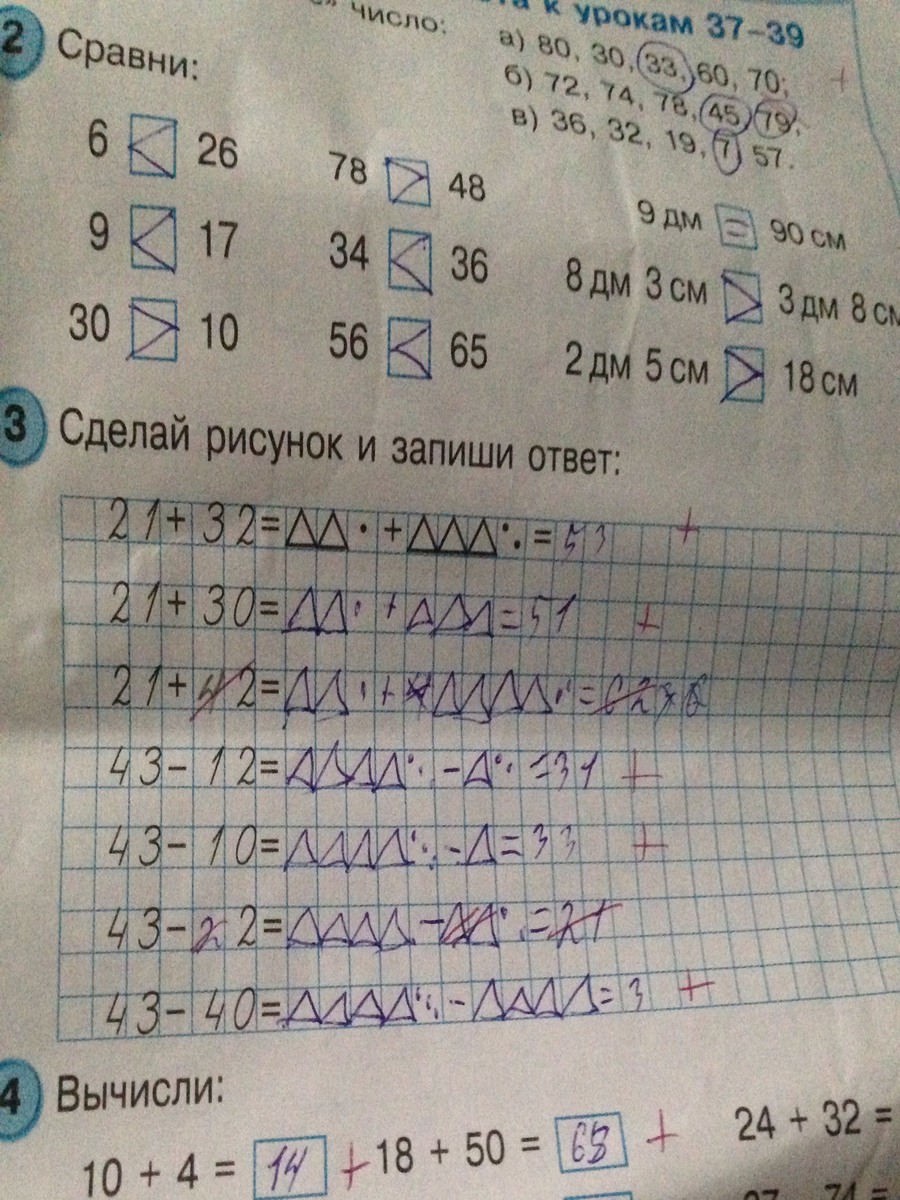 к урокам 37–39
число:
а) 80, 30, 33, 60, 70;
б) 72, 74, 78, 45, 79,
в) 36, 32, 19, 7, 57.
2 Сравни:
6 < 26
9 < 17
30 > 10
78 > 48
34 < 36
56 < 65
9 дм = 90 см
8 дм 3 см > 3 дм 8 см
2 дм 5 см > 18 см
3 Сделай рисунок и запиши ответ:
21+32=△△·+△△△:=53 +
21+30=△△·+△△△=51 +
21+ 2=△△·+△△△△:=
43-12=△△△△∴-△:=31 +
43-10=△△△△∴-△=33 +
43- 2=△△△△-△△:=21
43-40=△△△△∴-△△△△=3 +
4 Вычисли:
10 + 4 = 14 + 18 + 50 = 68 + 24 + 32 =